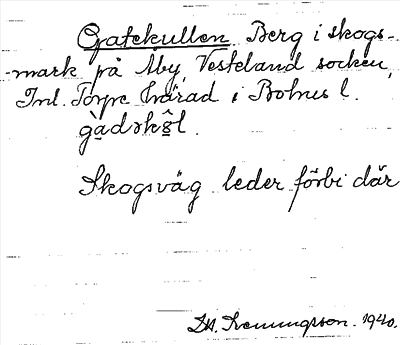 Gatekullen Berg i skogs-
-mark på Åby, Västerland socken,
Inl. Torpe härad i Bohus l.
gàdəkûl.
Skogsväg leder förbi där
Hemmingsson. 1940.